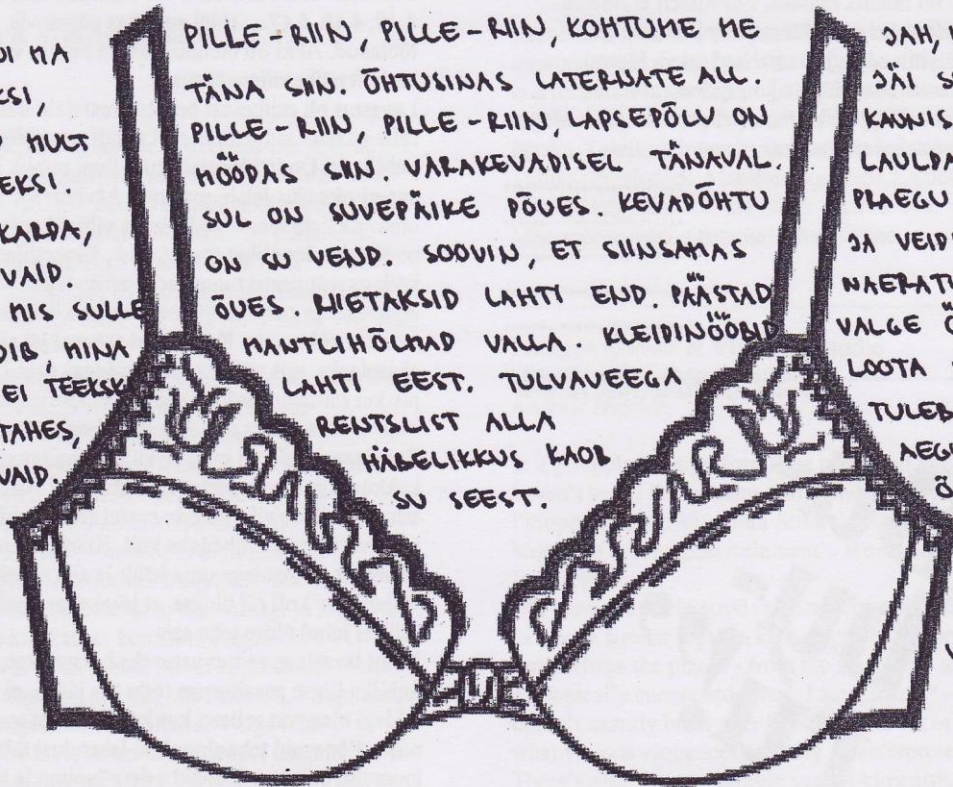 MA
ESI
MULT
EKSI.
KARDA,
VAID
MIS SULLE
DIB MINA
EI TEEKSKI
TAHES,
VAID.
PILLE-RIIN, PILLE-RIIN, KOHTUME ME
TÄNA SIIN. ÕHTUSINAS LATERNATE ALL.
PILLE-RIIN, PILLE-RIIN, LAPSEPÕLV ON
MÖÖDAS SIIN. VARAKEVADISEL TÄNAVAL.
SUL ON SUVEPÄIKE PÕUES. KEVADÕHTU
ON SU VEND. SOOVIN, ET SIINSAMAS
ÕUES. RIIETAKSID LAHTI END. PÄÄSTAD
MANTLIHÕLMAD VALLA. KLEIDINÖÖBID
LAHTI EEST. TULVAVEEGA
RENTSLIST ALLA
HÄBELIKKUS KAOB
SU SEEST
JAH,
JÄI
KAUNIS
LAULDA
PRAEGU
JA VEIDI
NAERATU
VALGE
LOOTA
TULEB
AEG